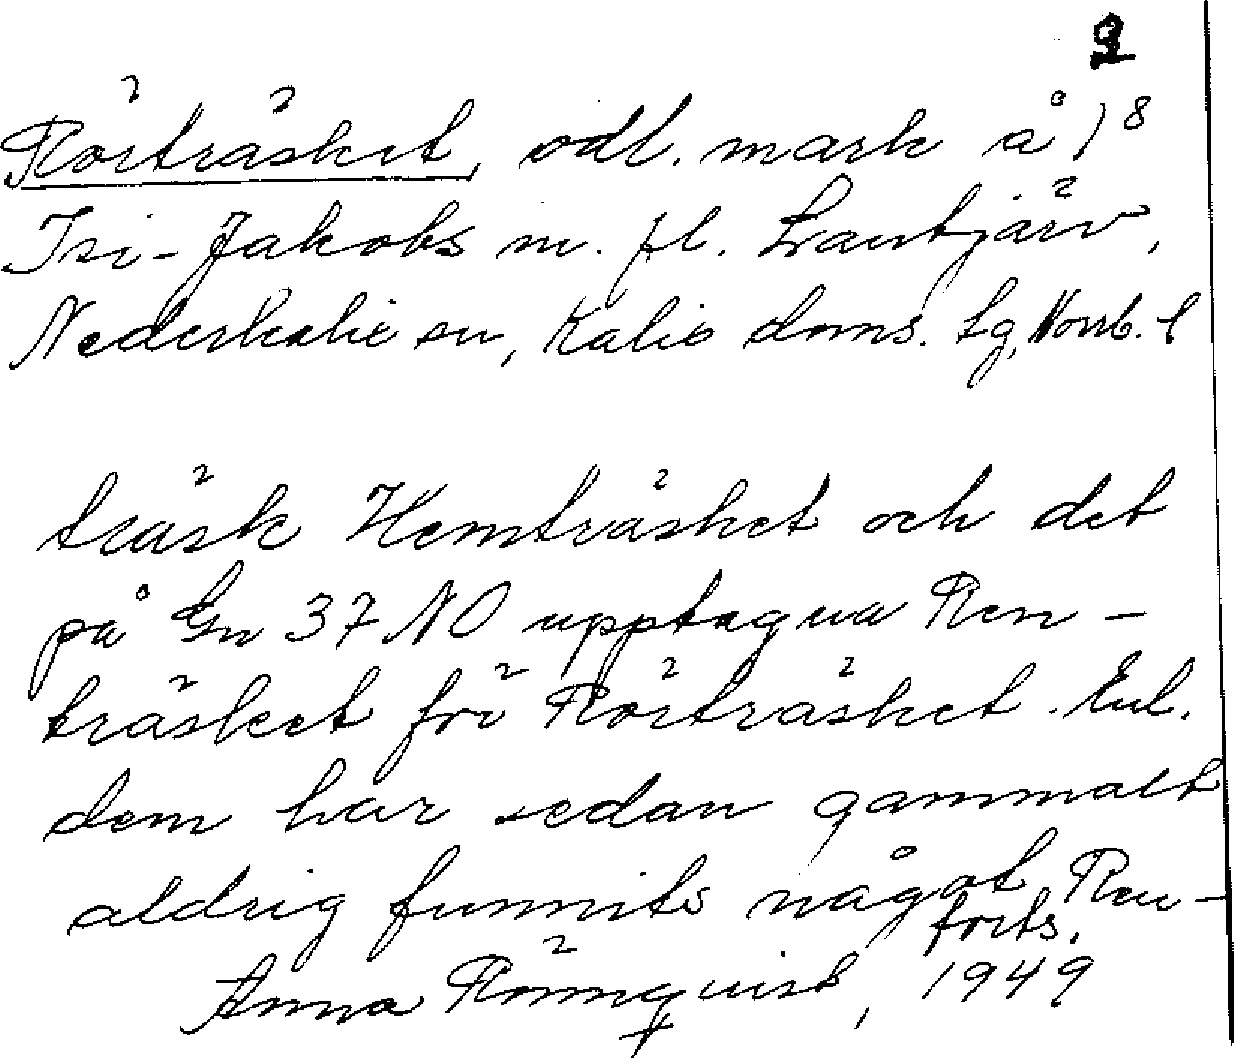 2
Rörträsket, odl. mark å 1⁸
Isi-Jakobs m. fl. Lantjärv,
Nederkalix sn, Kalix doms. lg, Norrb. l
träsk Hemträsket och det
på Gn 37 NO upptagna Ren-
träsket för Rörträsket. Enl.
dem har sedan gammalt
aldrig funnits något Ren-
forts.
Anna Rönnqvist, 1949